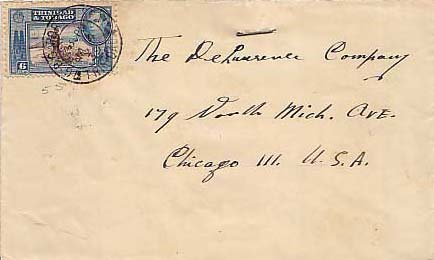 TRINIDAD
& TOBAGO
6
The DeLaurence Company
179 North Mich. AVE.
Chicago Ill. U.S.A.